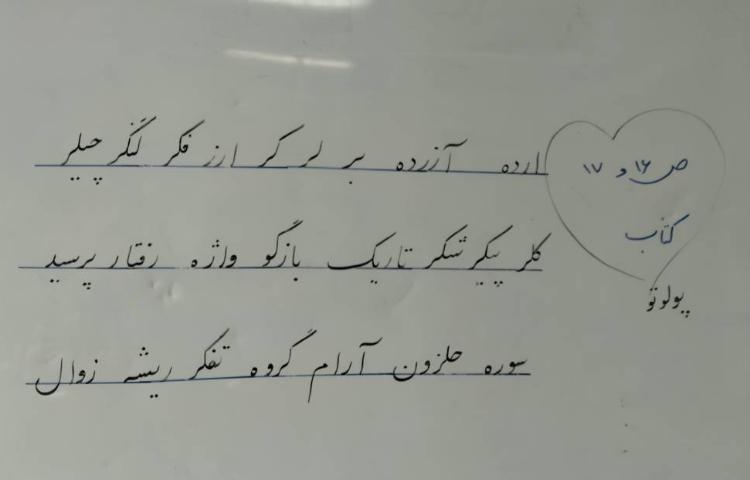 ص ۱۶ و ۱۷
کتاب
پولوتو
ارده آزرده بر لر کر ارز فکر لنگر چیلر
کلر پیکر شکر تاریک بازگو واژه رفتار پرسید
سوره حلزون آرام گروه تفکر ریشه زوال